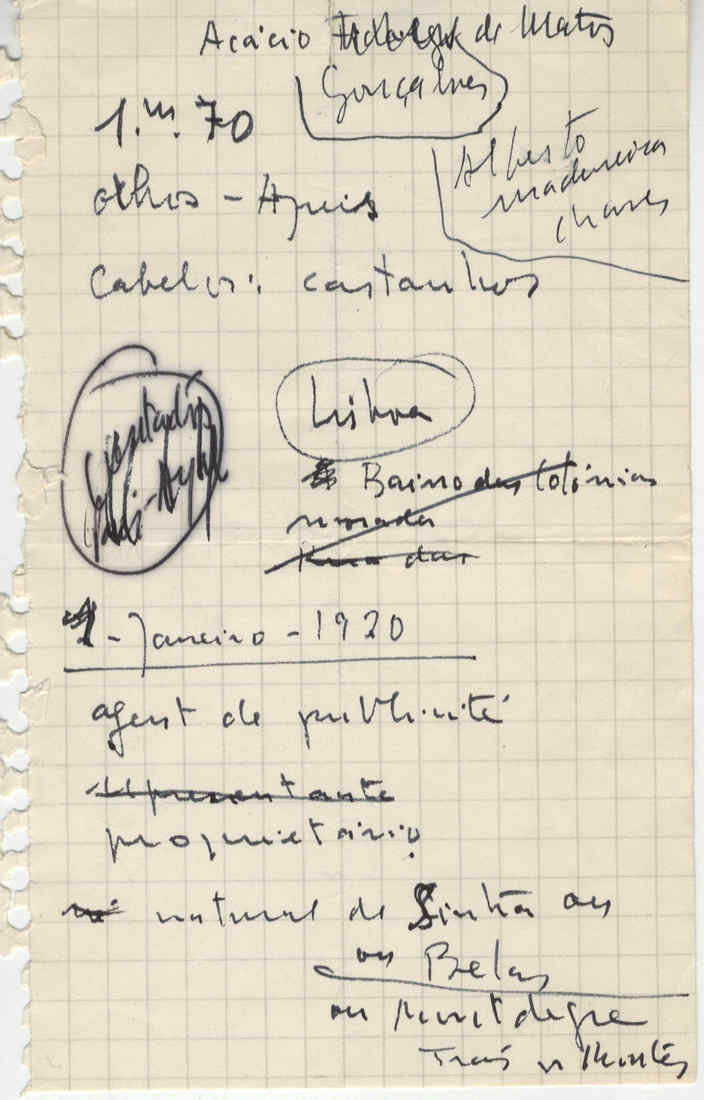 Acácio de Matos
Gonçalves
1.m.70
Alberto
Madureira
Chaves
olhos - Azuis
Cabelos: castanhos
Lisboa
Bairro das Colónias
morada
Rua das
1 - Janeiro - 1920
agent de publicité
Representante
proprietário
natural de Sintra ou
ou Belas
ou
Trás os Montes